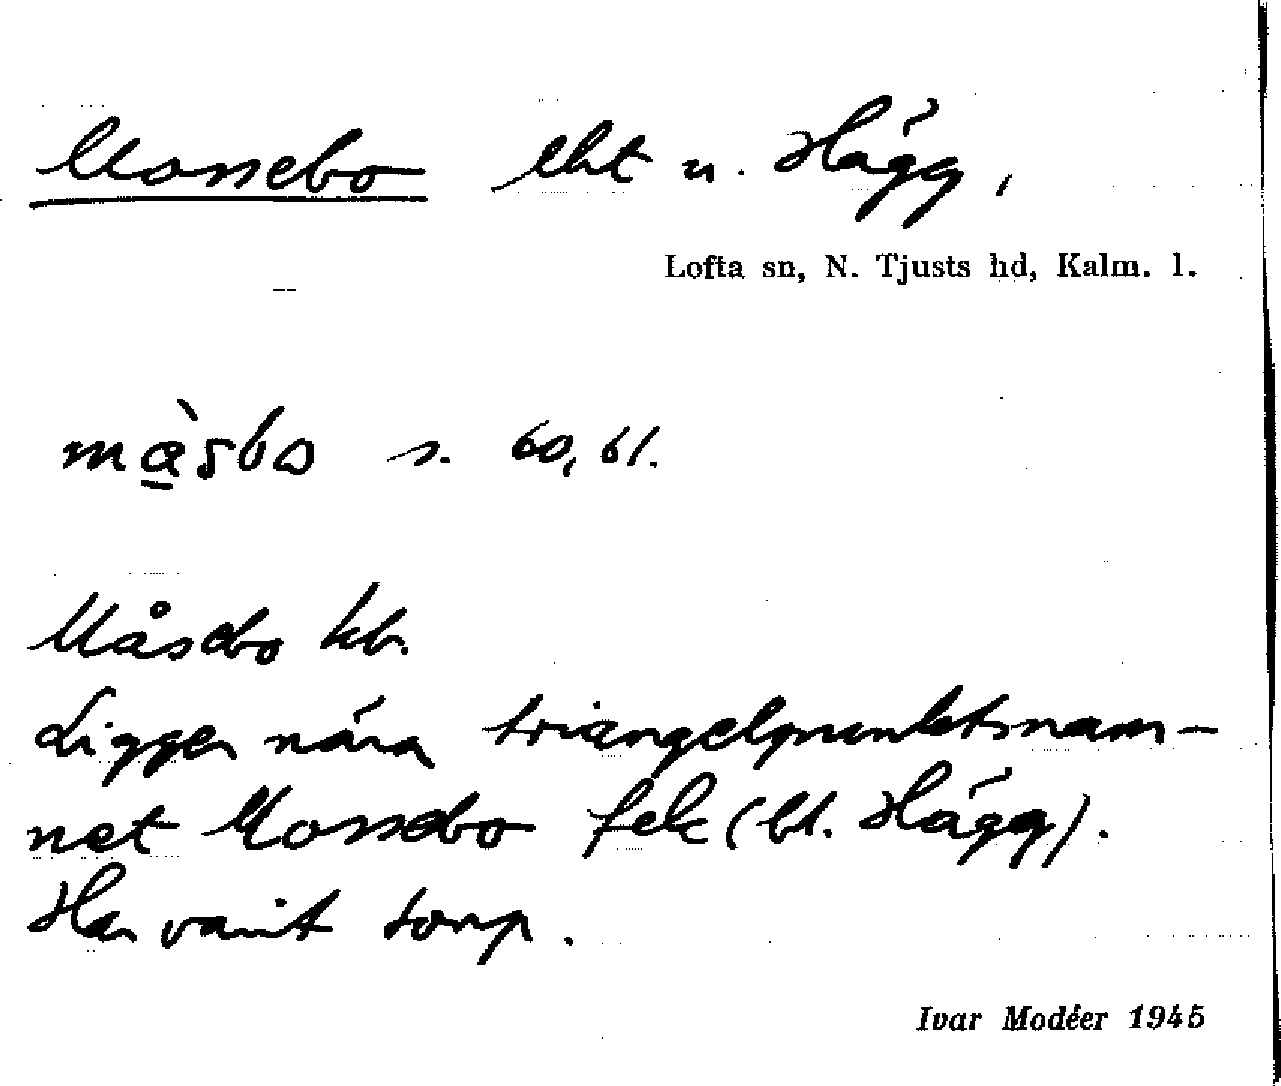 Mossebo lht u. Hägg,
Lofta sn, N. Tjusts hd, Kalm. l.
mà̲sbo s. 60, 61.
Måsebo kb.
Ligger nära triangelpunktsnam-
net Mossebo fek (bl. Hägg).
Har varit torp.
Ivar Modéer 1945